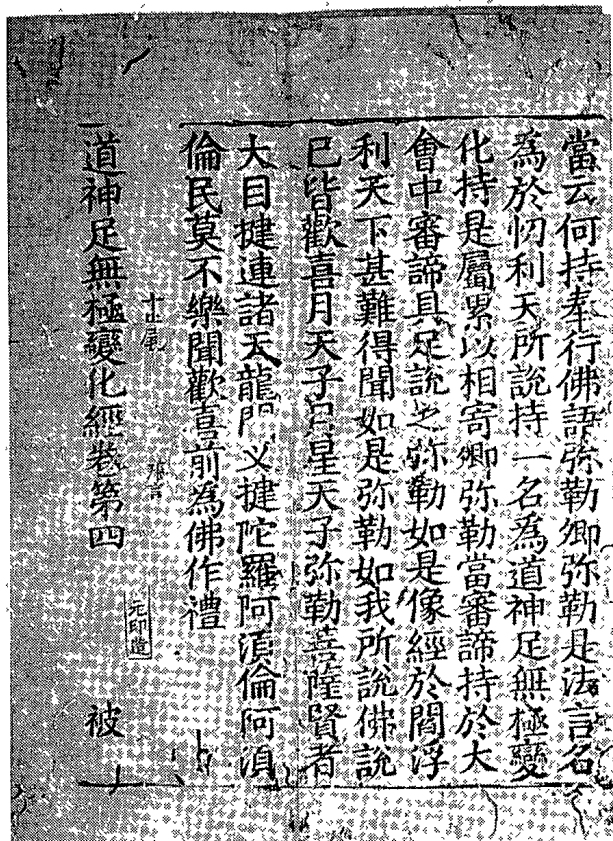 當云何持奉行佛語弥勒卿弥勒是法言名
為於忉利天所說持一名為道神足無極變
化持是屬累以相寄卿弥勒當審諦持於大
會中審諦具足說之弥勒如是像經於閻浮
利天下甚難得聞如是弥勒如我所說佛說
已皆歡喜月天子天子弥勒菩薩賢者
大目揵連諸天龍閱叉揵陀羅阿須倫阿須
倫民莫不樂聞歡喜前為佛作禮
元印造
道神足無極變化經卷第四 被